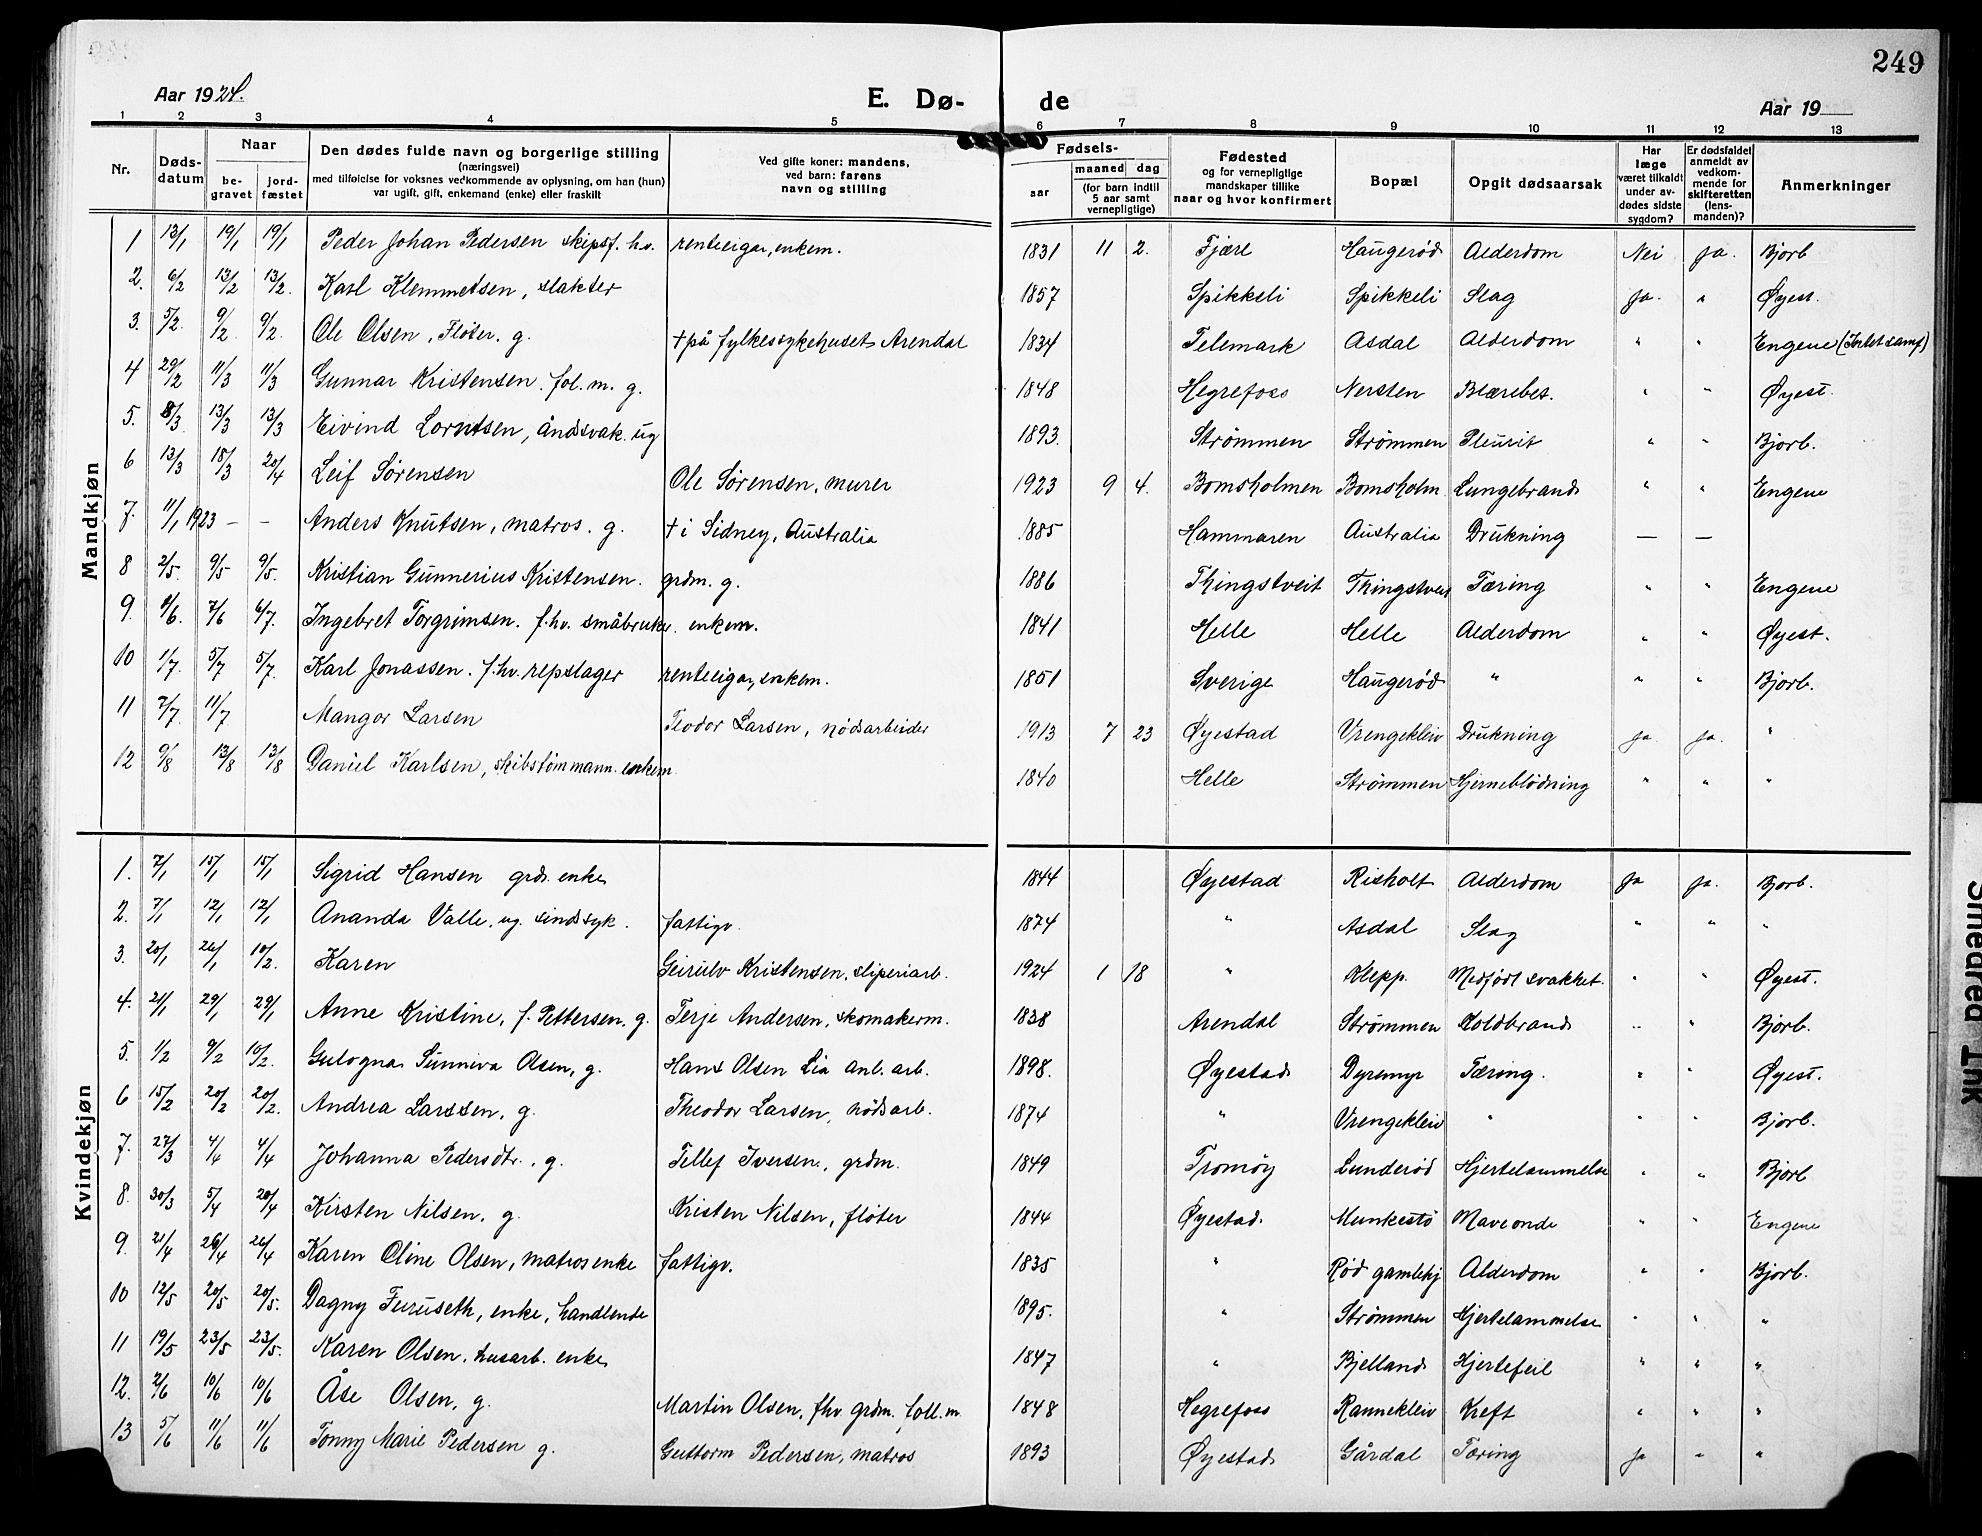 249
Aar 1924. E. Dø- de Aar 19
1 2 3 4 5 6 7 8 9 10 11 12 13
Nr. Døds-datum Naar be-gravet jord-fæstet Den dødes fulde navn og borgerlige stilling (næringsvei) med tilføielse for voksnes vedkommende av oplysning, om han (hun) var ugift, gift, enkemand (enke) eller fraskilt Ved gifte koner: mandens, ved barn: farens navn og stilling Fødsels- aar maaned dag (for barn indtil 5 aar samt vernepligtige) Fødested og for vernepligtige mandskaper tillike naar og hvor konfirmert Bopæl Opgit dødsaarsak Har læge været tilkaldt under av-dødes sidste sygdom? Er dødsfaldet anmeldt av vedkom-mende for skifteretten (lens-manden)? Anmerkninger
Mandkjøn
1 13/1 19/1 19/1 Peder Johan Pedersen skipsf. hv. renteeigar, enkem. 1831 11 2. Fjære Haugerød Alderdom Nei Ja. Bjorb
2. 6/2 13/2 13/2. Karl Klemmetsen, slakter 1857 Spikkeli Spikkeli Slag Ja. " Øyest.
3. 5/2. 9/2 9/2. Ole Olsen, Fløter. g. + på fylkessykehuset Arendal 1834 Telemark Asdal Alderdom " " Engene
4 29/2 11/3 11/3 Gunnar Kristensen. fol. m. g. 1848 Hegrefoss Nersten Blærebet. " " Øyest.
5. 8/3 13/3 13/3 Eivind Lorntsen, åndsvak. ug 1893. Strømmen Strømmen Pleurit " " Bjorb.
6 13/3 18/3 20/4 Leif Sørensen Ole Sørensen, murer 1923 9 4. Bomsholmen Bomsholm Lungebrand " " Engene
7. 11/1 1923 - - Anders Knutsen, matros. g. + i Sidney, Australia 1885 Hammaren Australia Drukning — —
8 2/5. 9/5 9/5. Kristian Gunnerius Kristensen. grdm. g. 1886 Thingstveit Thingstveit Tæring " " Engene
9. /6. 7/6 6/7. Ingebret Torgrimsen. f. hv. småbruker. enkem. 1841 Helle Helle Alderdom " " Øyest.
10 1/7. 5/7 5/7. Karl Jonassen. f. hv. repslager renteeigar, enkem. 1851 Sverige Haugerød " " " Bjorb.
11 7/7. 11/7 Mangor Larsen Teodor Larsen, nødsarbeider 1913 7 23 Øyestad Vrengekleiv Drukning ja ja. "
12 9/8 13/8 13/8 Daniel Karlsen, skibstømmann. enkem 1840 Helle Strømmen Hjerneblødning " " "
Kvindekjøn
1. 7/1 15/1 15/1 Sigrid Hansen grdr. enke 1844 Øyestad Risholt Alderdom Ja ja. Bjorb.
2. 7/1 12/1 12/1 Ananda Valle, ug. sindssyk. fattigv. 1874 " Asdal Slag " " "
3. 20/1 26/1 10/2. Karen Geirulv Kristensen, sliperiarb. 1924 1 18 " Klepp. Medfødt svakhet. " " Øyest.
4. 21/1 29/1 29/1 Anne Kristine, f. Pettersen. g. Terje Andersen, skomakerm. 1838 Arendal Strømmen Koldbrand " " Bjorb.
5. 1/2 9/2 10/2. Gulogna Sunniva Olsen, g. Hans Olsen Lia anl. arb. 1898. Øyestad Dyremyr Tæring. " " Øyest.
6 15/2 20/2 20/2. Andrea Larssen, g. Theodor Larsen, nødsarb. 1874 " Vrengekleiv " " " Bjorb.
7. 27/3 4/4 4/4 Johanna Pedersdtr., g. Tellef Iversen, grdm. 1849 Tromøy Lunderød Hjertelammelse " " Bjorb
8. 30/3 5/4 20/4 Kirsten Nilsen. g. Kristen Nilsen, fløter 1844 Øyestad Munkestø Maveonde " " Engene
9. 21/4 26/4 26/4 Karen Oline Olsen, matros enke fattigv. 1835 " Rød gamlehj Alderdom " " Bjorb.
10 12/5 20/5 20/5. Dagny Furuseth, enke, handlende 1895. " Strømmen Hjertelammelse " " "
11 19/5 23/5 23/5. Karen Olsen, husarb. enke 1847 " Bjelland Hjertefeil " " "
12. 2/6 10/6 10/6 Åse Olsen, g. Martin Olsen, fhv grdm. foll. m 1848 Hegrefoss Rannekleiv Kreft " " "
13 5/6 11/6 11/6 Tonny Marie Pedersen g. Guttorm Pedersen, matros 1893 Øyestad Gårdal Tæring ja " "